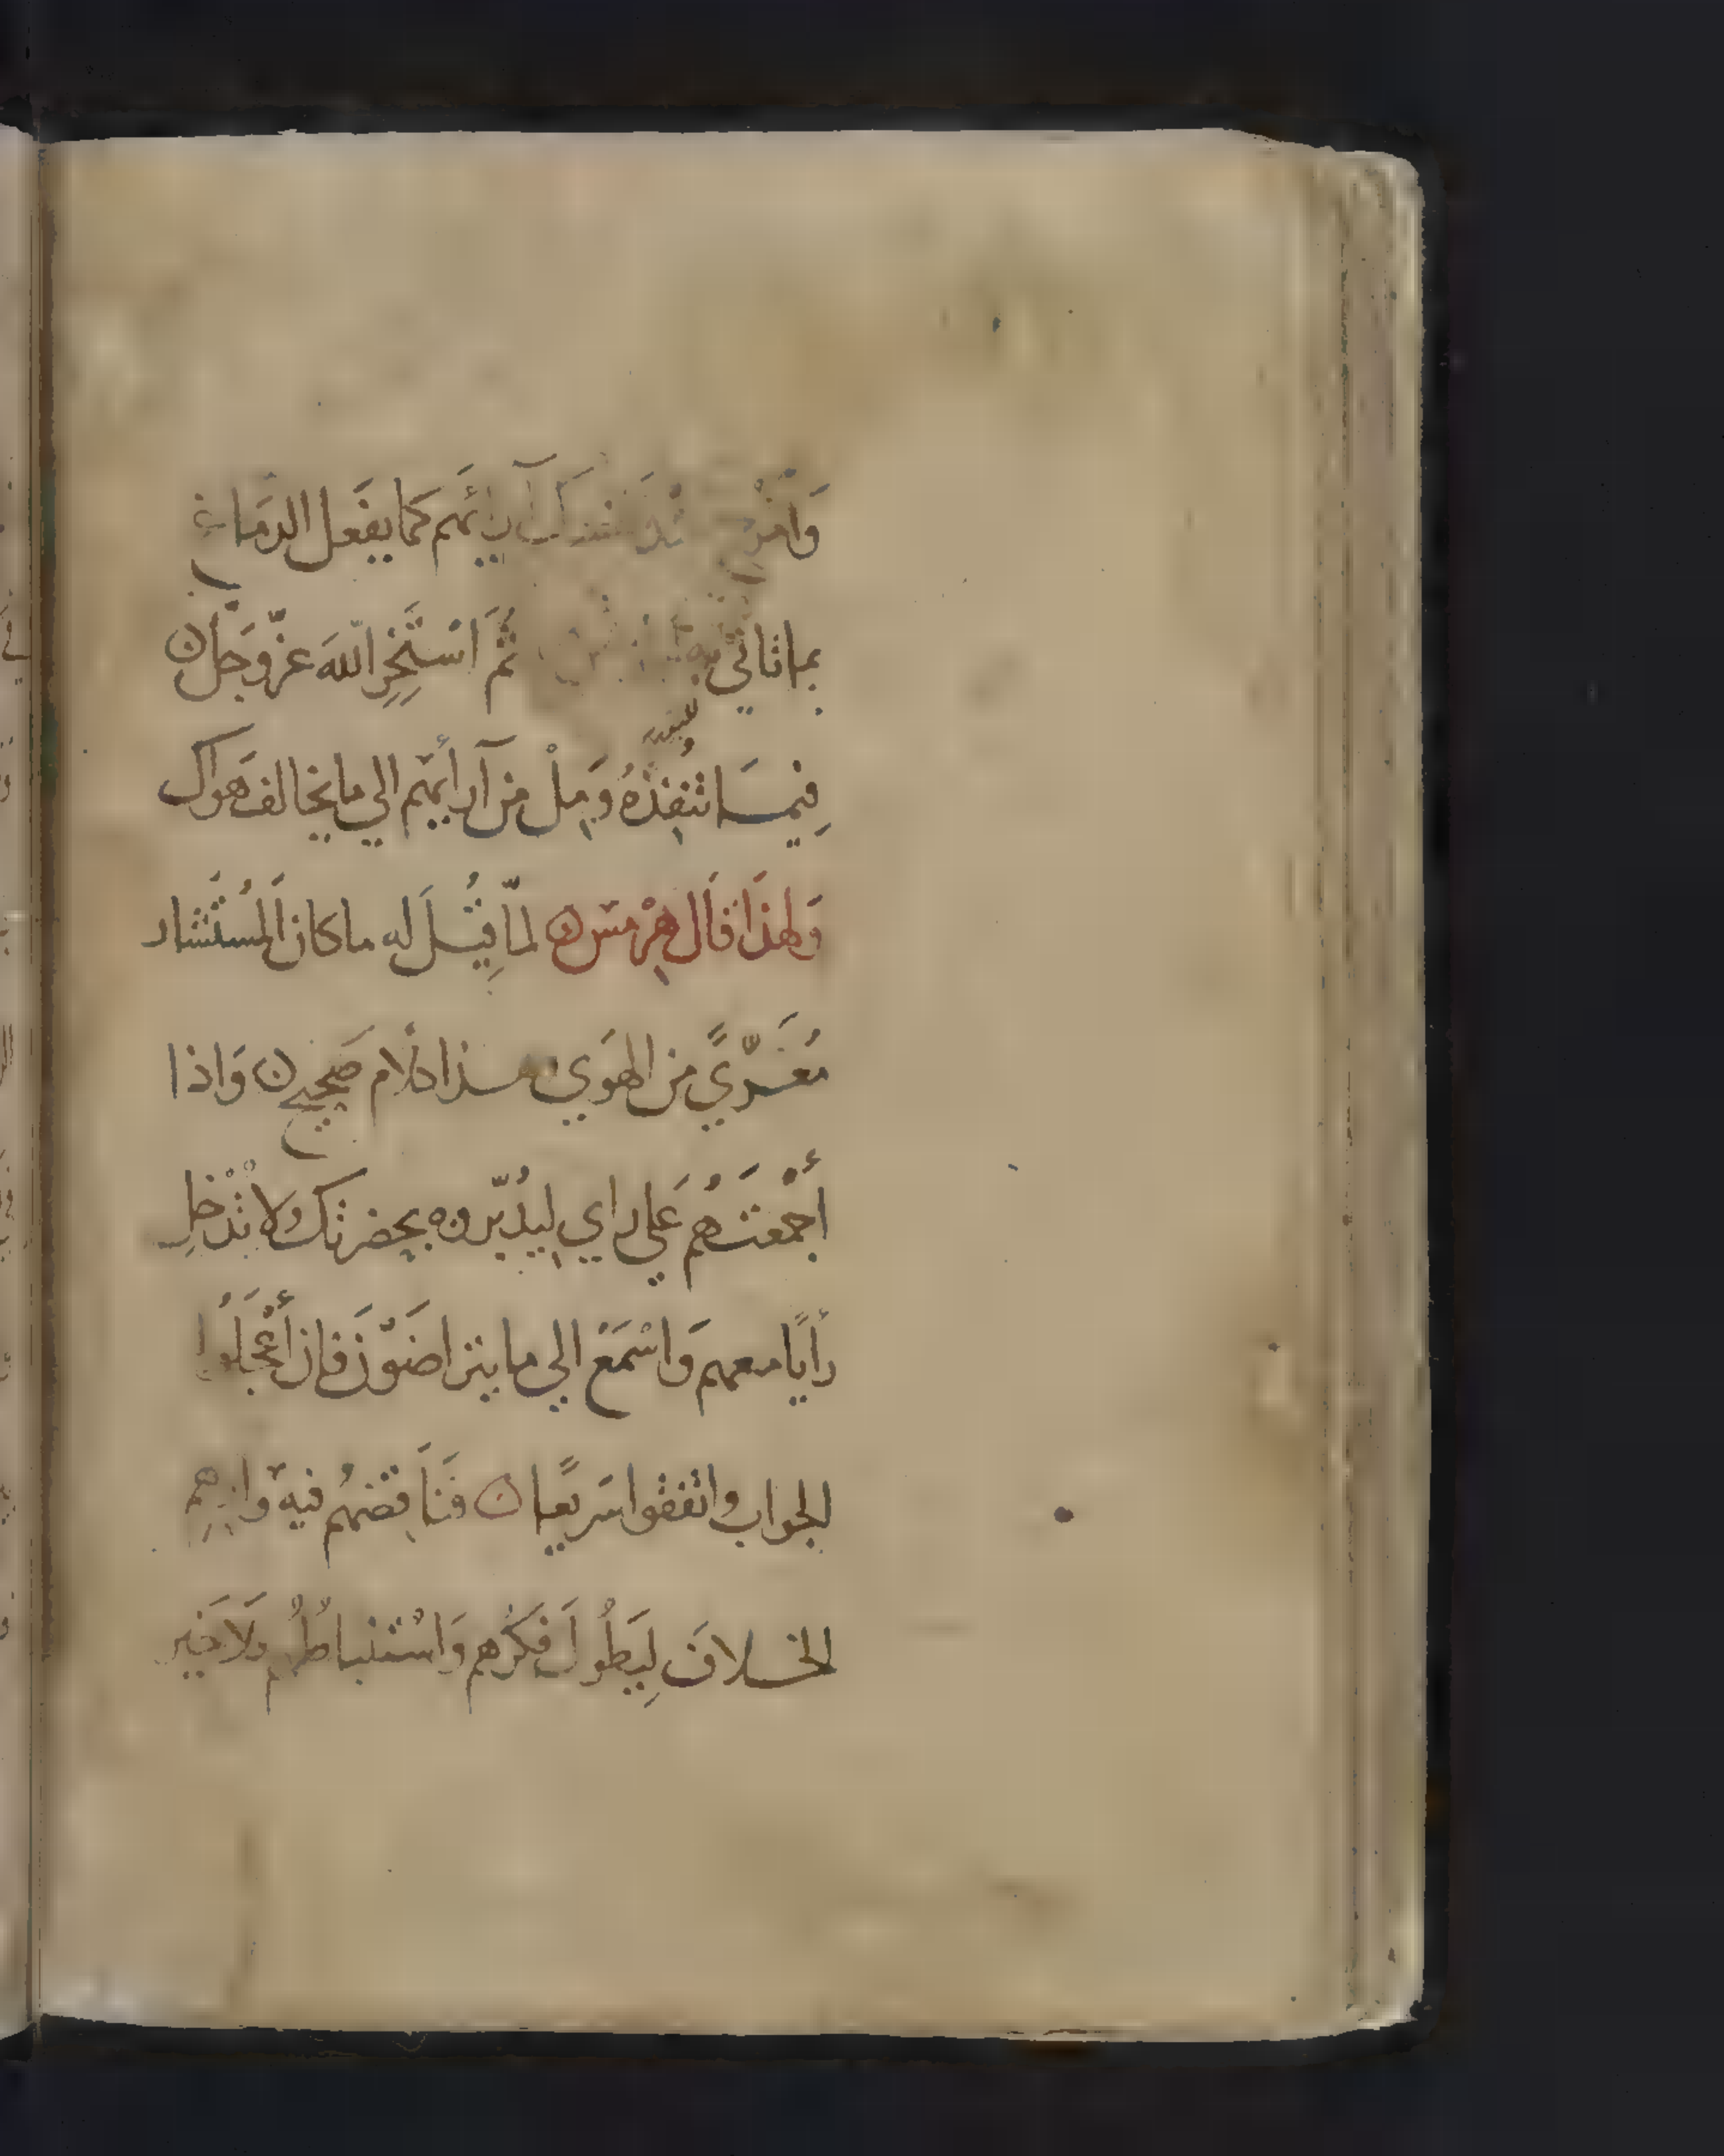 آرائهم كما يفعل الدماغ
بما تاتي به ثُمَّ اسْتَخِرِ اللهَ عزّ وجَلّ ن
فِيمَا تُنفِذُهُ وَمِلْ من آرائهم الي ما يخالف هَواك
وَلهذَا قَال هِرْمس ه لمّا قِيُلَ له ما كانَ المُسْتَشار
مُعَرّيً من الهَوي هذا كلام صَحيح ن وَاذا
أَجْمَعْتَهُم عَلي راي ليُدبّروه بحضرتك ولا تُدْخِل
رأيًا معهم وَاسْمَعْ الي ما يتراضَوْنَ فان أَعْجَلُوا
الجواب واتفقوا سَريعًا ن فنَاقضهُم فيه
الخلاف لِيَطُولَ فِكْرُهم وَاسْتنباطُهُم وَلاَ خَير